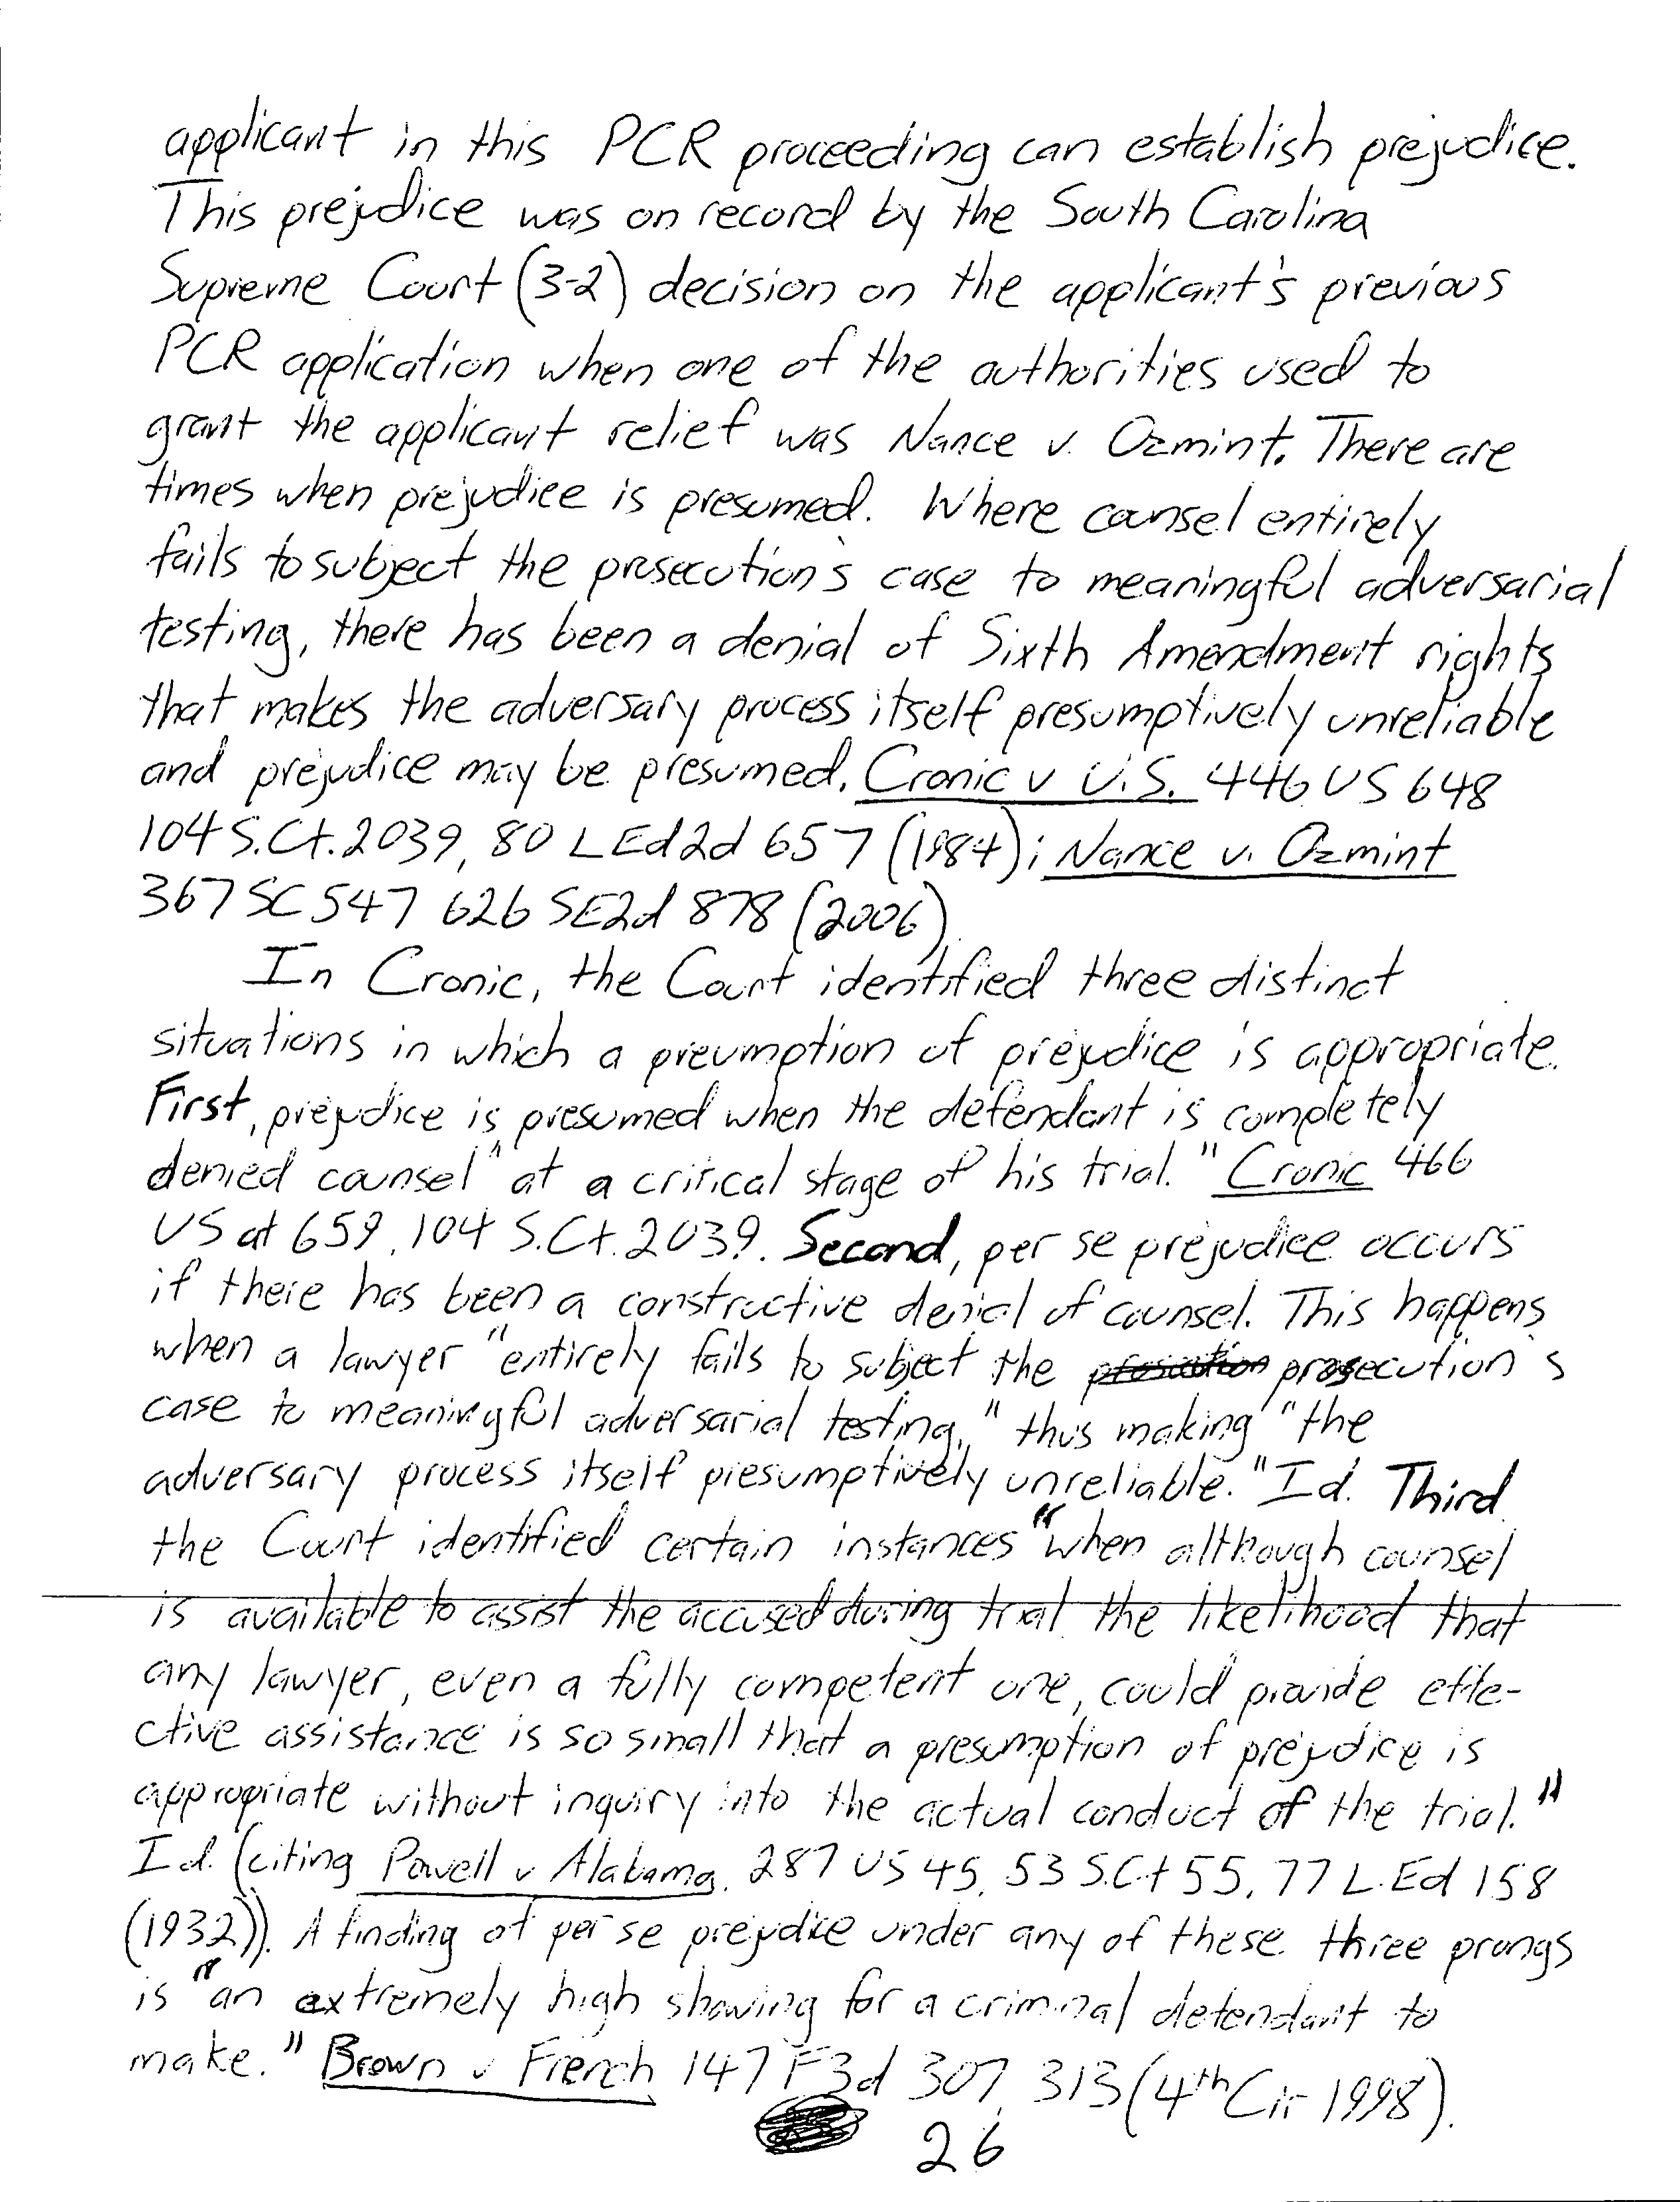 applicant in this PCR proceeding can establish prejudice.
This prejudice was on record by the South Carolina
Supreme Court (3-2) decision on the applicant's previous
PCR application when one of the authorities used to
grant the applicant relief was Nance v. Ozmint. There are
times when prejudice is presumed. Where counsel entirely
fails to subject the prosecution's case to meaningful adversarial
testing, there has been a denial of Sixth Amendment rights
that makes the adversary process itself presumptively unreliable
and prejudice may be presumed. Cronic v U.S. 446 US 648
104 S.Ct. 2039, 80 LEd2d 657 (1984); Nance v. Ozmint
367 SC 547 626 SE2d 878 (2006)
In Cronic, the Court identified three distinct
situations in which a preumption of prejudice is appropriate.
First, prejudice is presumed when the defendant is completely
denied counsel "at a critical stage of his trial." Cronic 466
US at 659, 104 S.Ct. 2039. Second, per se prejudice occurs
if there has been a constructive denial of counsel. This happens
when a lawyer "entirely fails to subject the prosecution's
case to meaningful adversarial testing," thus making "the
adversary process itself presumptively unreliable." Id. Third
the Court identified certain instances "when although counsel
is available to assist the accused during trial the likelihood that
any lawyer, even a fully competent one, could provide effe-
ctive assistance is so small that a presumption of prejudice is
appropriate without inquiry into the actual conduct of the trial."
Id. (citing Powell v Alabama, 287 US 45, 53 S.Ct 55, 77 L.Ed 158
(1932)). A finding of per se prejudice under any of these three prongs
is "an extremely high showing for a criminal defendant to
make." Brown v French 147 F3d 307, 313 (4th Cir 1998).
26